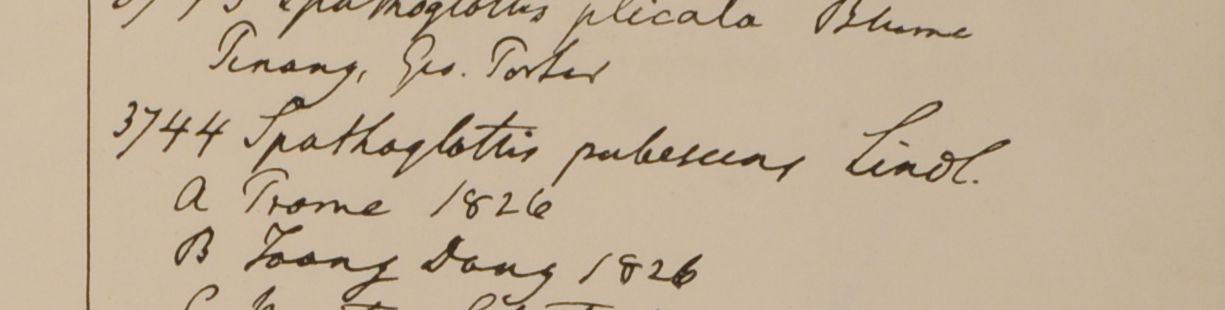 Spathoglottis plicata Blume
Penang, Geo. Porter
3744 Spathoglottis pubescens Lindl.
A Prome 1826
B Toong Dong 1826